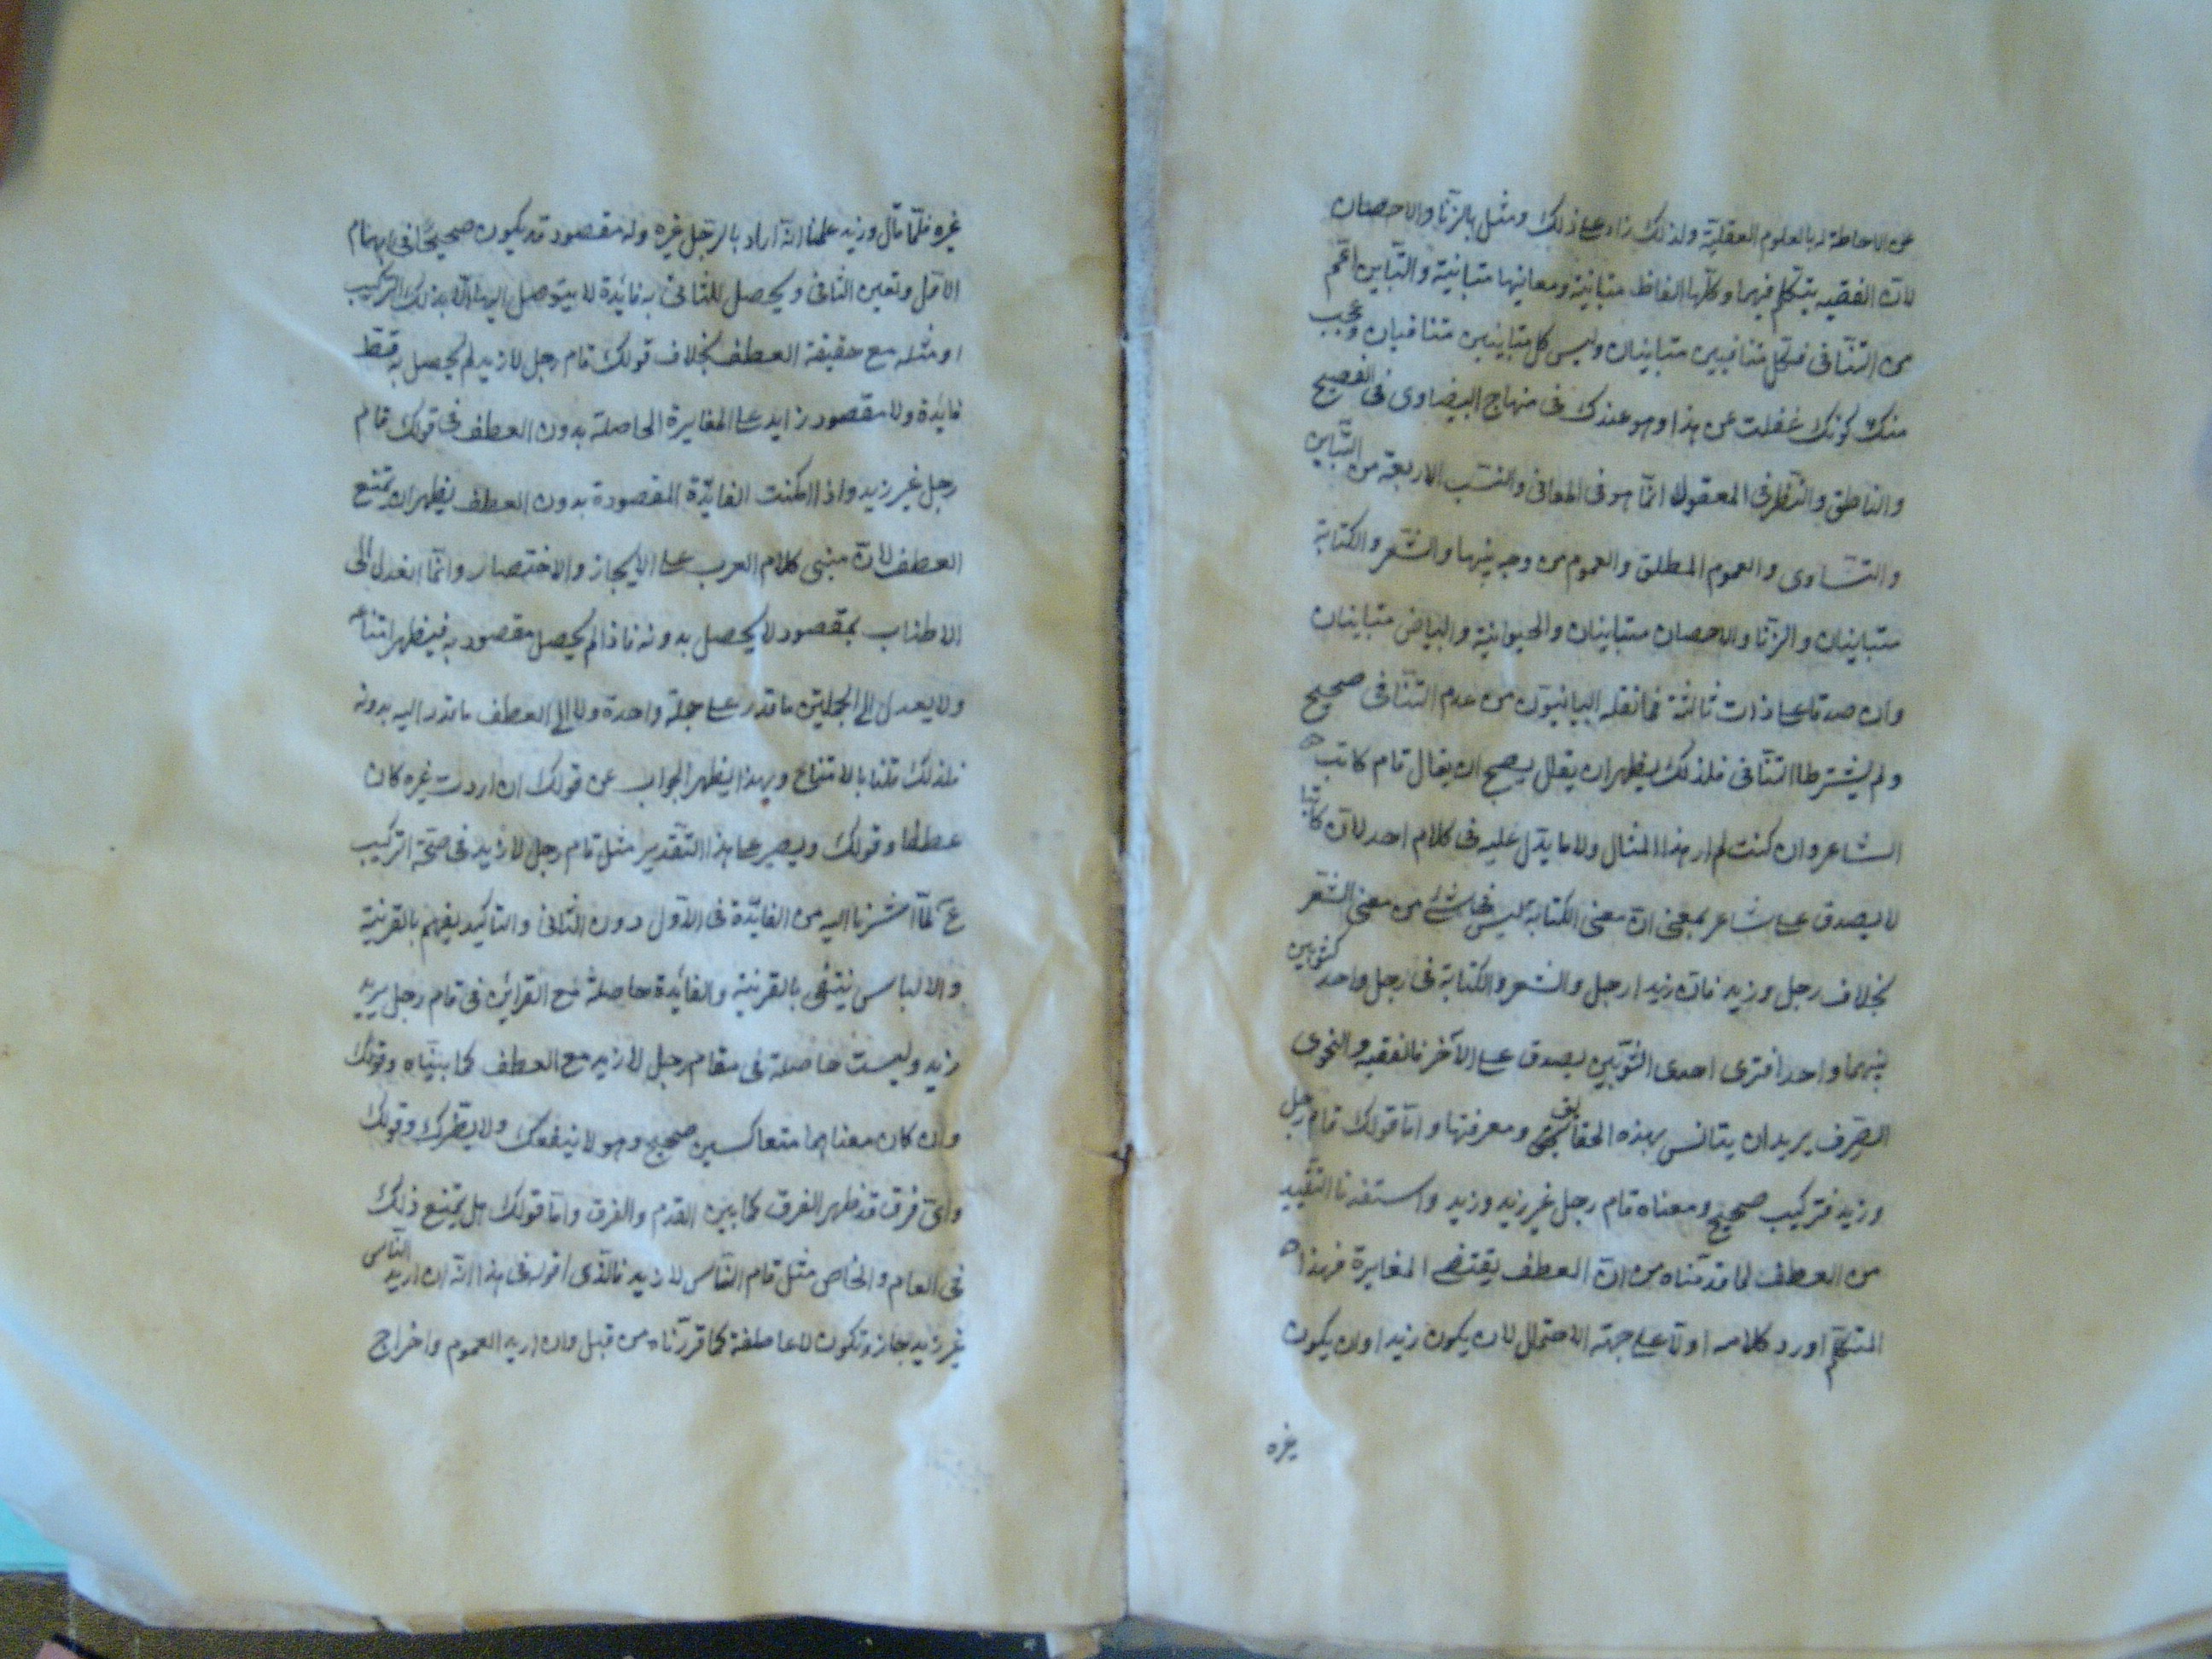 عن الاحاطة له بالعلوم العقلية ولذلك زاد على ذلك ومثل بالزنا والاحصان
لان الفقيه يتكلم فيهما وكلها الفاظ متباينة ومعانيها متباينة والتباين اعم
من التنافى فكل متنافيين متباينان وليس كل متباينين متنافيان وعجب
منك كونك غفلت عن هذا وهو عندك فى منهاج البيضاوى فى الفصيح
والناطق والنظر فى المعقول انما هو فى المعانى والنسب الاربعة من التباين
والتساوى والعموم المطلق والعموم من وجه بينها والشعر والكتابة
متباينان والزنا والاحصان متباينان والحيوانية والبياض متباينان
وان صدقا على ذات ثالثة فما نقله البيانيون من عدم التنافى صحيح
ولم يشترطا التنافى فلذلك يظهر ان يقال يصح ان يقال قام كاتب لا
الشاعر وان كنت لم ار هذا المثال ولا ما يدل عليه فى كلام احد لان كاتبا
لا يصدق على شاعر بمعنى ان معنى الكتابة ليس فى شئ من معنى الشعر
بخلاف رجل وزيد فان زيدا رجل والشعر والكتابة فى رجل واحد كثوبين
يلبسهما واحد افترى احدى الثوبين يصدق على الآخر فالفقيه والنحوى
الصرف يريد ان يتانس بهذه الحقايق ومعرفتها واما قولك قام رجل
وزيد فتركيب صحيح ومعناه قام رجل غير زيد وزيد واستفدنا التقييد
من العطف لما قدمناه من ان العطف يقتضى المغايرة فهذا
المتكلم اورد كلامه اولا على جهة الاحتمال لان يكون زيدا وان يكون
غيره
غيره فلما قال وزيد علمنا انه اراد بالرجل غيره وله مقصود قد يكون صحيحا فى ابهام
الاول وتعين الثانى ويحصل للثانى به فائدة لا يتوصل اليها الا بذلك التركيب
او مثله مع حقيقة العطف بخلاف قولك قام رجل لا زيد لم يحصل به قط
فايدة ولا مقصود زايد على المغايرة الحاصلة بدون العطف فى قولك قام
رجل غير زيد واذا امكنت الفايدة المقصودة بدون العطف يظهر ان يمتنع
العطف لان مبنى كلام العرب على الايجاز والاختصار وانما نعدل الى
الاطناب بمقصود لا يحصل بدونه فاذا لم يحصل مقصود به فيظهر امتناعه
ولا يعدل الى الجملتين ما قدر على جملة واحدة ولا الى العطف ما قدر اليه بدونه
فلذلك قلنا بالامتناع وبهذا يظهر الجواب عن قولك ان اردت غيره كان
عطفا وقولك ويصير على هذا التقدير مثل قام رجل لا زيد فى صحة التركيب
لما اشرنا اليه من الفايدة فى الاول دون الثانى والتاكيد يفهم بالقرينة
والالباس ينتفى بالقرينة والفايدة حاصلة مع القراين فى قام رجل يريد
زيد وليست حاصلة فى مقام رجل لا زيد مع العطف كما بيناه وقولك
وان كان معناهما متعاكسين صحيح وهو لا ينفعك ولا يضرك وقولك
واى فرق قد ظهر الفرق كما بين القدم والفرق واما قولك هل يمتنع ذلك
فى العام والخاص مثل قام الناس لا زيد فالذى اقوله فى هذا انه ان اريد الناس
غير زيد جاز وتكون لا عاطفة كما قررناه من قبل وان اريد العموم واخراج